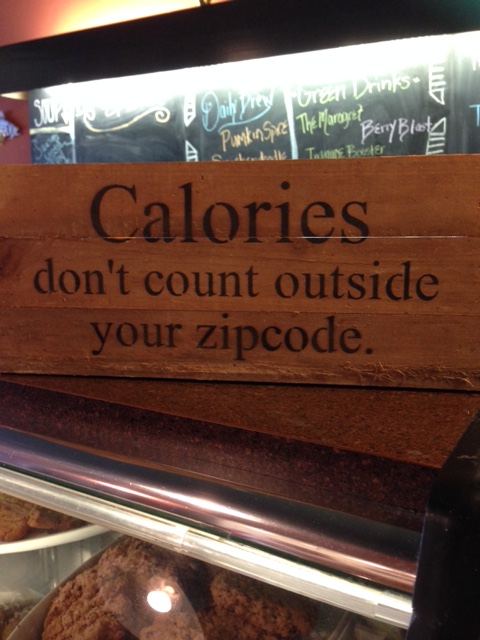 SOUPS
Daily Brew
Pumkin Spice
Green Drinks
The Margret
Berry Blast
Calories
don't count outside
your zipcode.